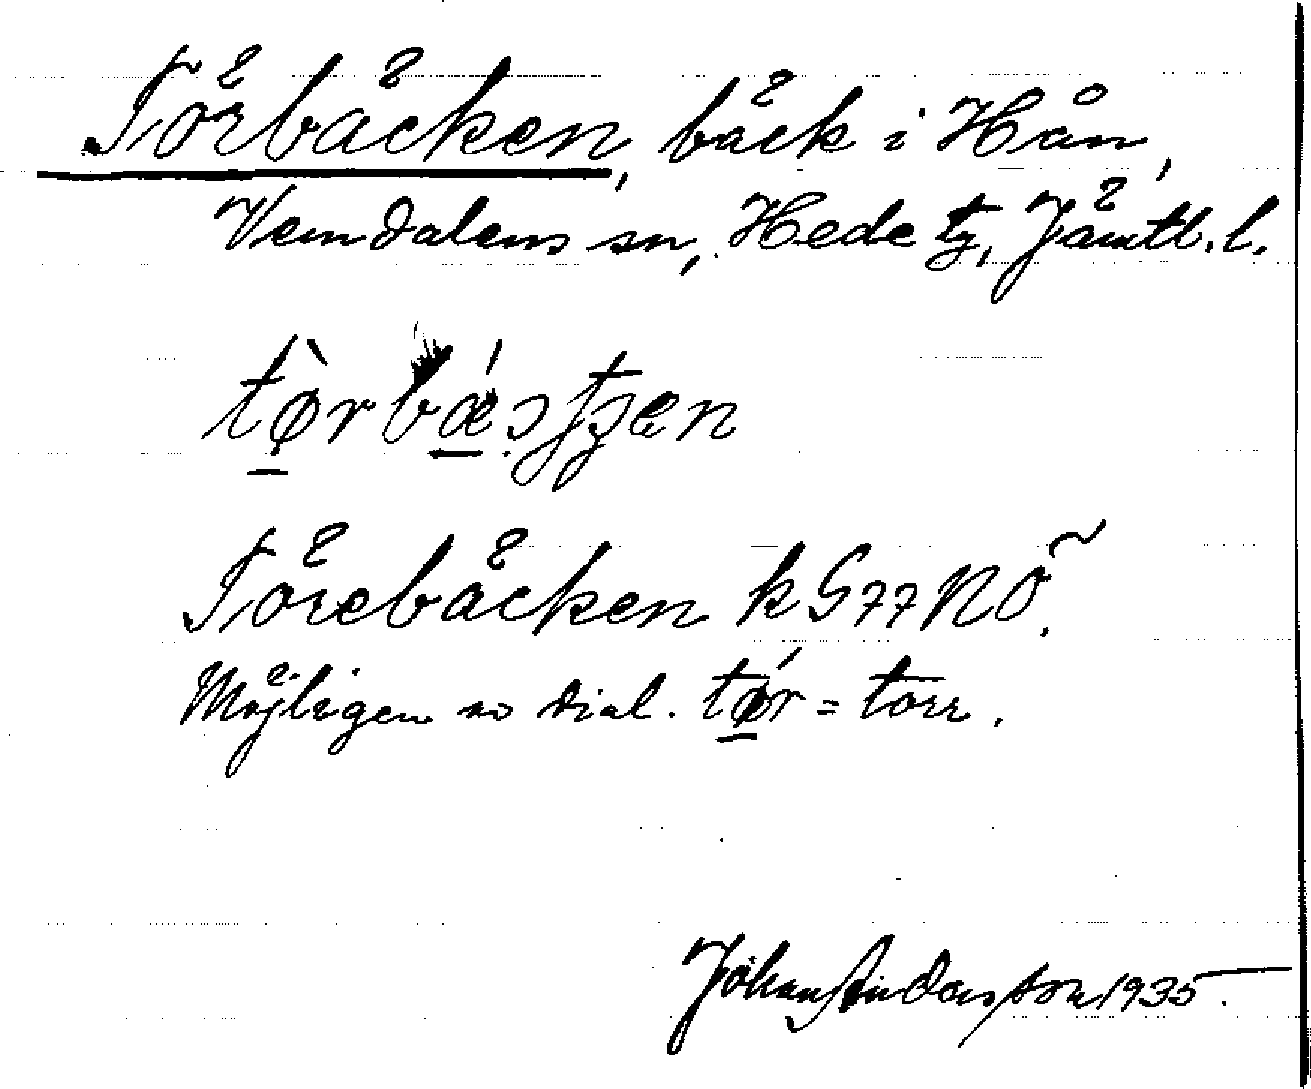 Törbäcken, bäck i Hån,
Vemdalens sn, Hede tg, Jämtl. l.
tø̀rbǽstʒen
Törebäcken k G77 NÖ.
Möjligen av dial. tǿr = torr.
Johan Andersson 1935.